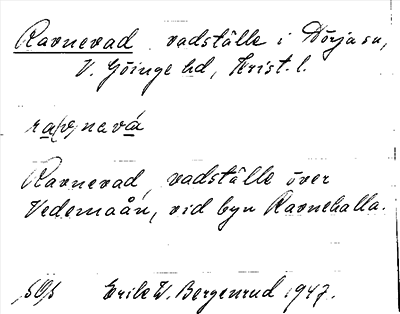 Ravnevad vadställe i Dörja sn,
V. Göinge hd, Krist. l.
ra(v)nevá
Ravnevad, vadställe över
Vedemaån, vid byn Ravnehalla.
Erik W. Bergenrud 1947.